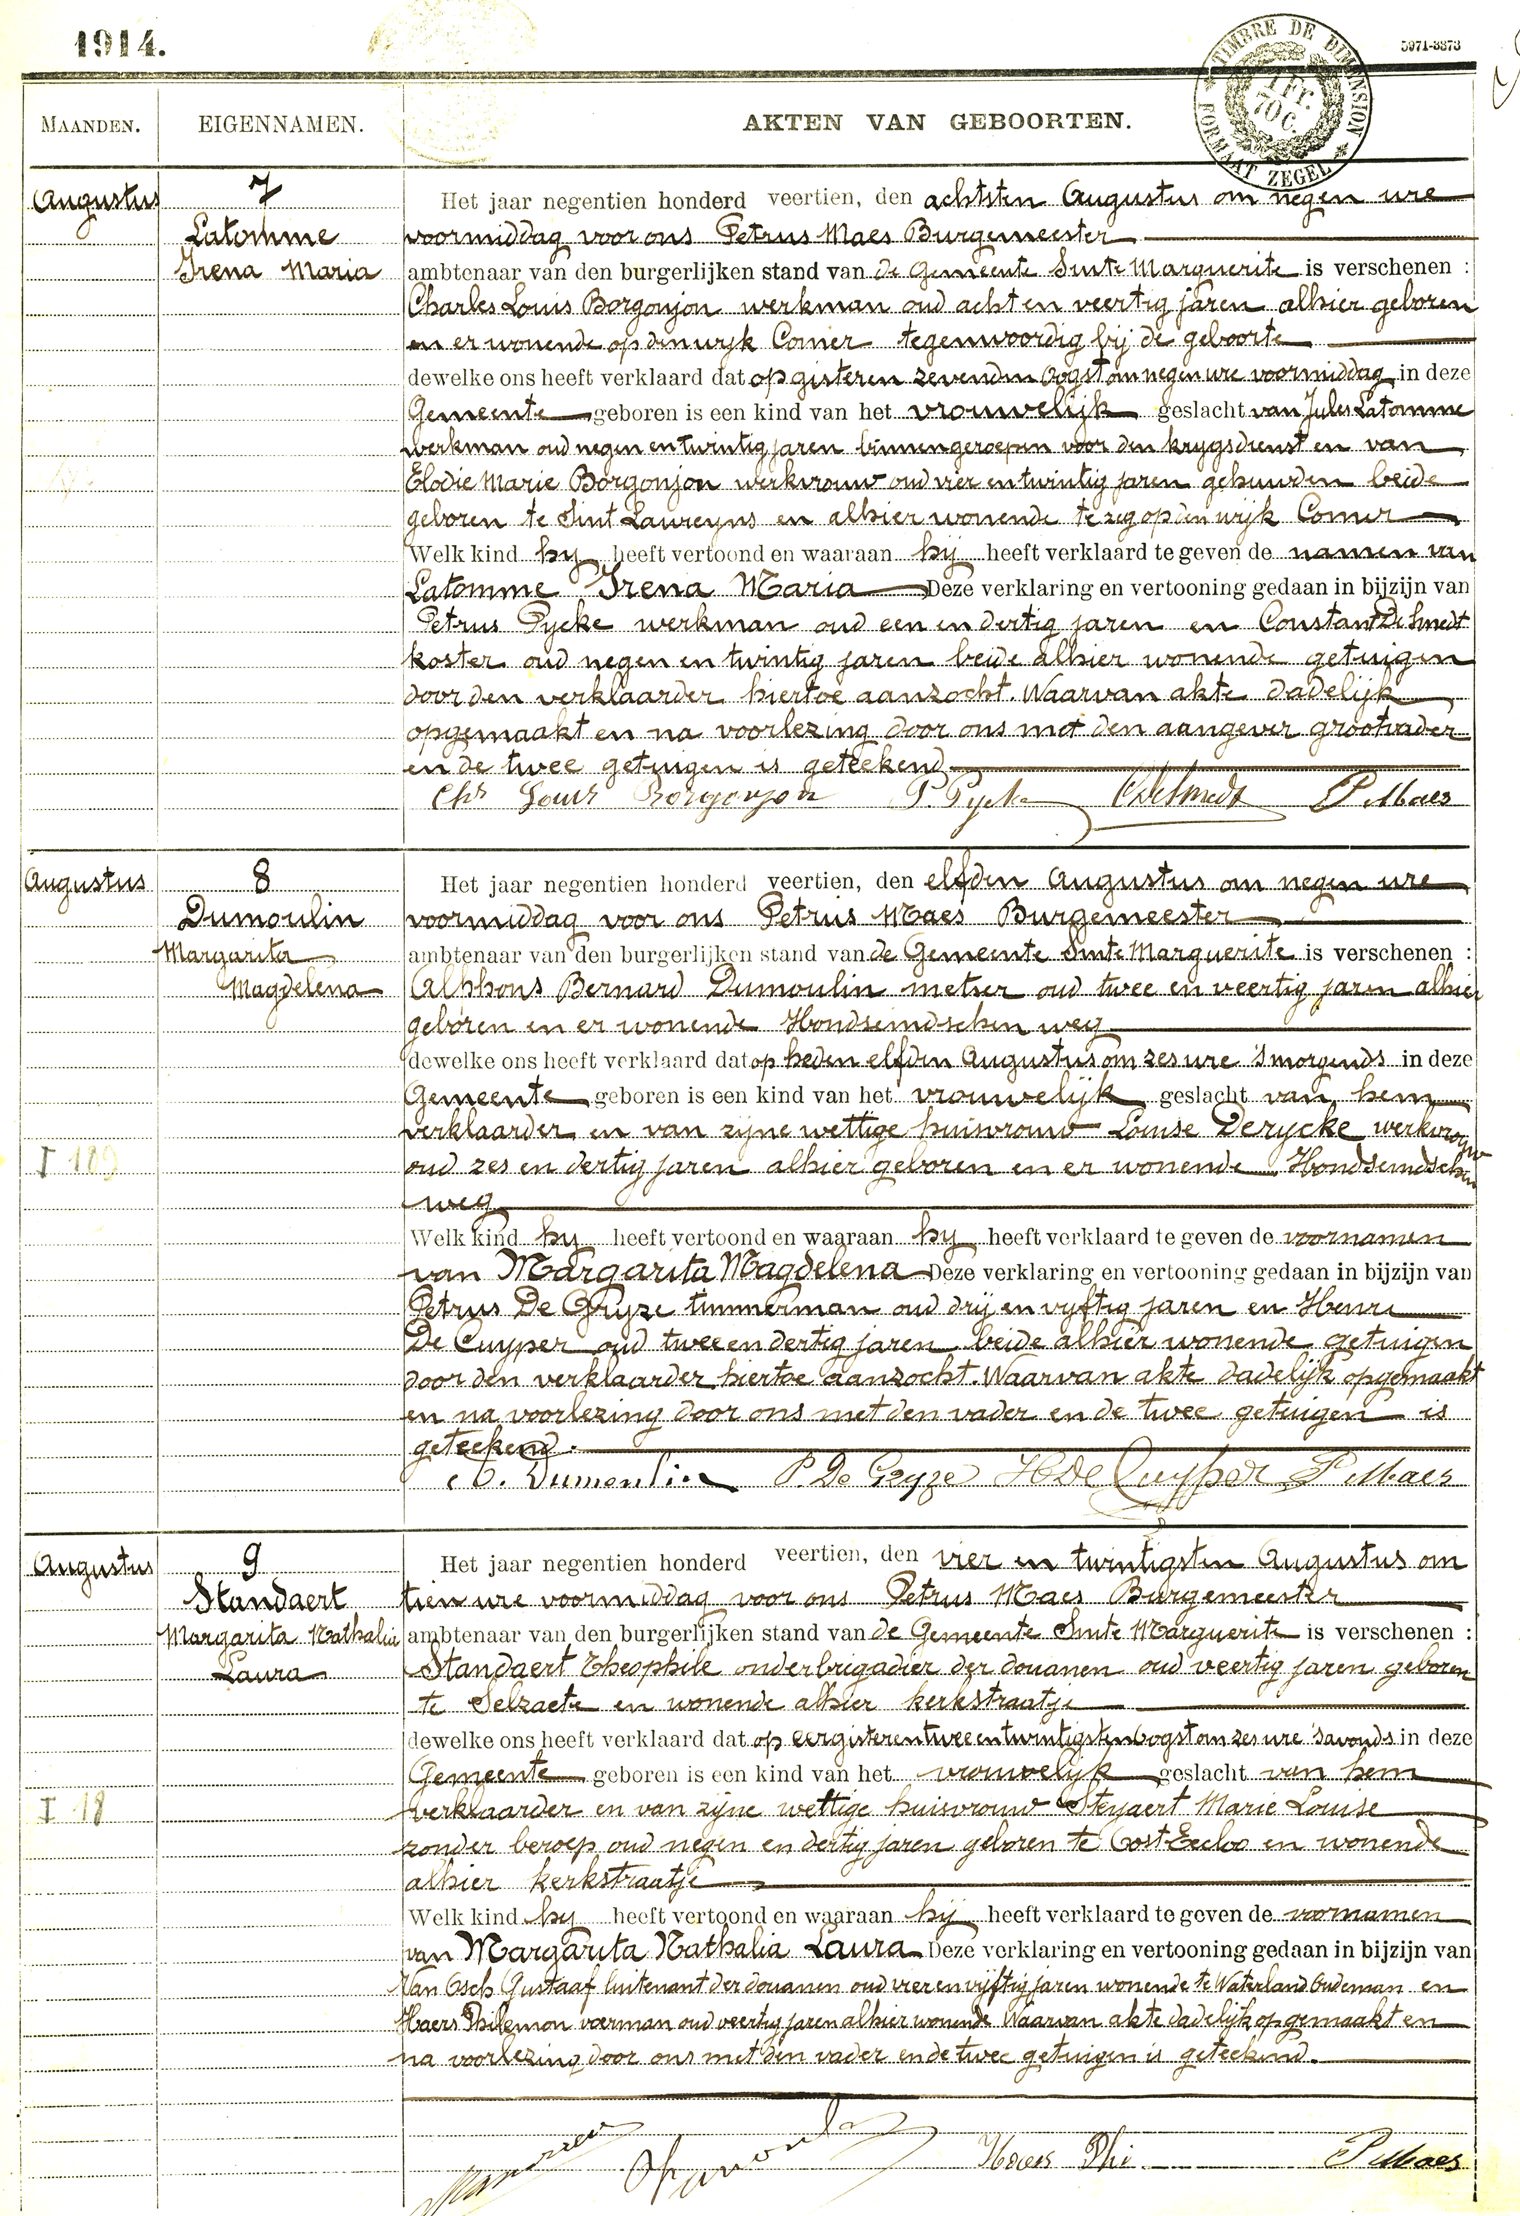 1914.
5971-3373
TIMBRE DE DIMENSION
1 Fr. 70 C.
FORMAAT ZEGEL
MAANDEN. EIGENNAMEN. AKTEN VAN GEBOORTEN.
Augustus
7
Latomme
Irena Maria
Het jaar negentien honderd veertien, den achtsten Augustus om negen ure
voormiddag voor ons Petrus Maes Burgemeester
ambtenaar van den burgerlijken stand van de Gemeente Sinte Marguerite is verschenen :
Charles Louis Borgonjon werkman oud acht en veertig jaren alhier geboren
en er wonende op den wyk Comer tegenwoordig bij de geboorte
dewelke ons heeft verklaard dat op gisteren zevenden oogst om negen ure voormiddag in deze
Gemeente geboren is een kind van het vrouwelijk geslacht van Jules Latomme
werkman oud negen en twintig jaren binnengeroepen voor den krygsdienst en van
Elodie Marie Borgonjon werkvrouw oud vier en twintig jaren gehuwden beide
geboren te Sint Laureyns en alhier wonende te zeg op den wyk Comer
Welk kind hy heeft vertoond en waaraan hij heeft verklaard te geven de namen van
Latomme Irena Maria Deze verklaring en vertooning gedaan in bijzijn van
Petrus Pycke werkman oud een en dertig jaren en Constant De Smedt
koster oud negen en twintig jaren beide alhier wonende getuigen
door den verklaarder hiertoe aanzocht. Waarvan akte dadelijk
opgemaakt en na voorlezing door ons met den aangever grootvader
en de twee getuigen is geteekend
Chs Louis Borgonjon P. Pycke C De Smedt P Maes
Augustus
8
Dumoulin
Margarita
Magdelena
I 189
Het jaar negentien honderd veertien, den elfden Augustus om negen ure
voormiddag voor ons Petrus Maes Burgemeester
ambtenaar van den burgerlijken stand van de Gemeente Sinte Marguerite is verschenen :
Alphons Bernard Dumoulin metser oud twee en veertig jaren alhier
geboren en er wonende Hondseindschen weg
dewelke ons heeft verklaard dat op heden elfden Augustus om zes ure 's morgends in deze
Gemeente geboren is een kind van het vrouwelijk geslacht van hem
verklaarder en van zijne wettige huisvrouw Louise Derycke werkvrouw
oud zes en dertig jaren alhier geboren en er wonende Hondseindschen
weg
Welk kind hy heeft vertoond en waaraan hy heeft verklaard te geven de voornamen
van Margarita Magdelena Deze verklaring en vertooning gedaan in bijzijn van
Petrus De Gryze timmerman oud drij en vyftig jaren en Henri
De Cuyper oud twee en dertig jaren beide alhier wonende getuigen
door den verklaarder hiertoe aanzocht. Waarvan akte dadelijk opgemaakt
en na voorlezing door ons met den vader en de twee getuigen is
geteekend.
A. Dumoulin P. De Gryze H De Cuyper P Maes
Augustus
9
Standaert
Margarita Nathalia
Laura
I 18
Het jaar negentien honderd veertien, den vier en twintigsten Augustus om
tien ure voormiddag voor ons Petrus Maes Burgemeester
ambtenaar van den burgerlijken stand van de Gemeente Sinte Marguerite is verschenen :
Standaert Theophile onderbrigadier der douanen oud veertig jaren geboren
te Selzaete en wonende alhier kerkstraatje
dewelke ons heeft verklaard dat op eergisteren twee en twintigsten oogst om zes ure 's avonds in deze
Gemeente geboren is een kind van het vrouwelyk geslacht van hem
verklaarder en van zijne wettige huisvrouw Steyaert Marie Louise
zonder beroep oud negen en dertig jaren geboren te Oost-Eecloo en wonende
alhier kerkstraatje
Welk kind hy heeft vertoond en waaraan hij heeft verklaard te geven de voornamen
van Margarita Nathalia Laura Deze verklaring en vertooning gedaan in bijzijn van
Van Osch Gustaaf luitenant der douanen oud vier en vijftig jaren wonende te Waterland Oudeman en
Haers Philemon voerman oud veertig jaren alhier wonende Waarvan akte dadelijk opgemaakt en
na voorlezing door ons met den vader en de twee getuigen is geteekend.
Haers Phi P Maes